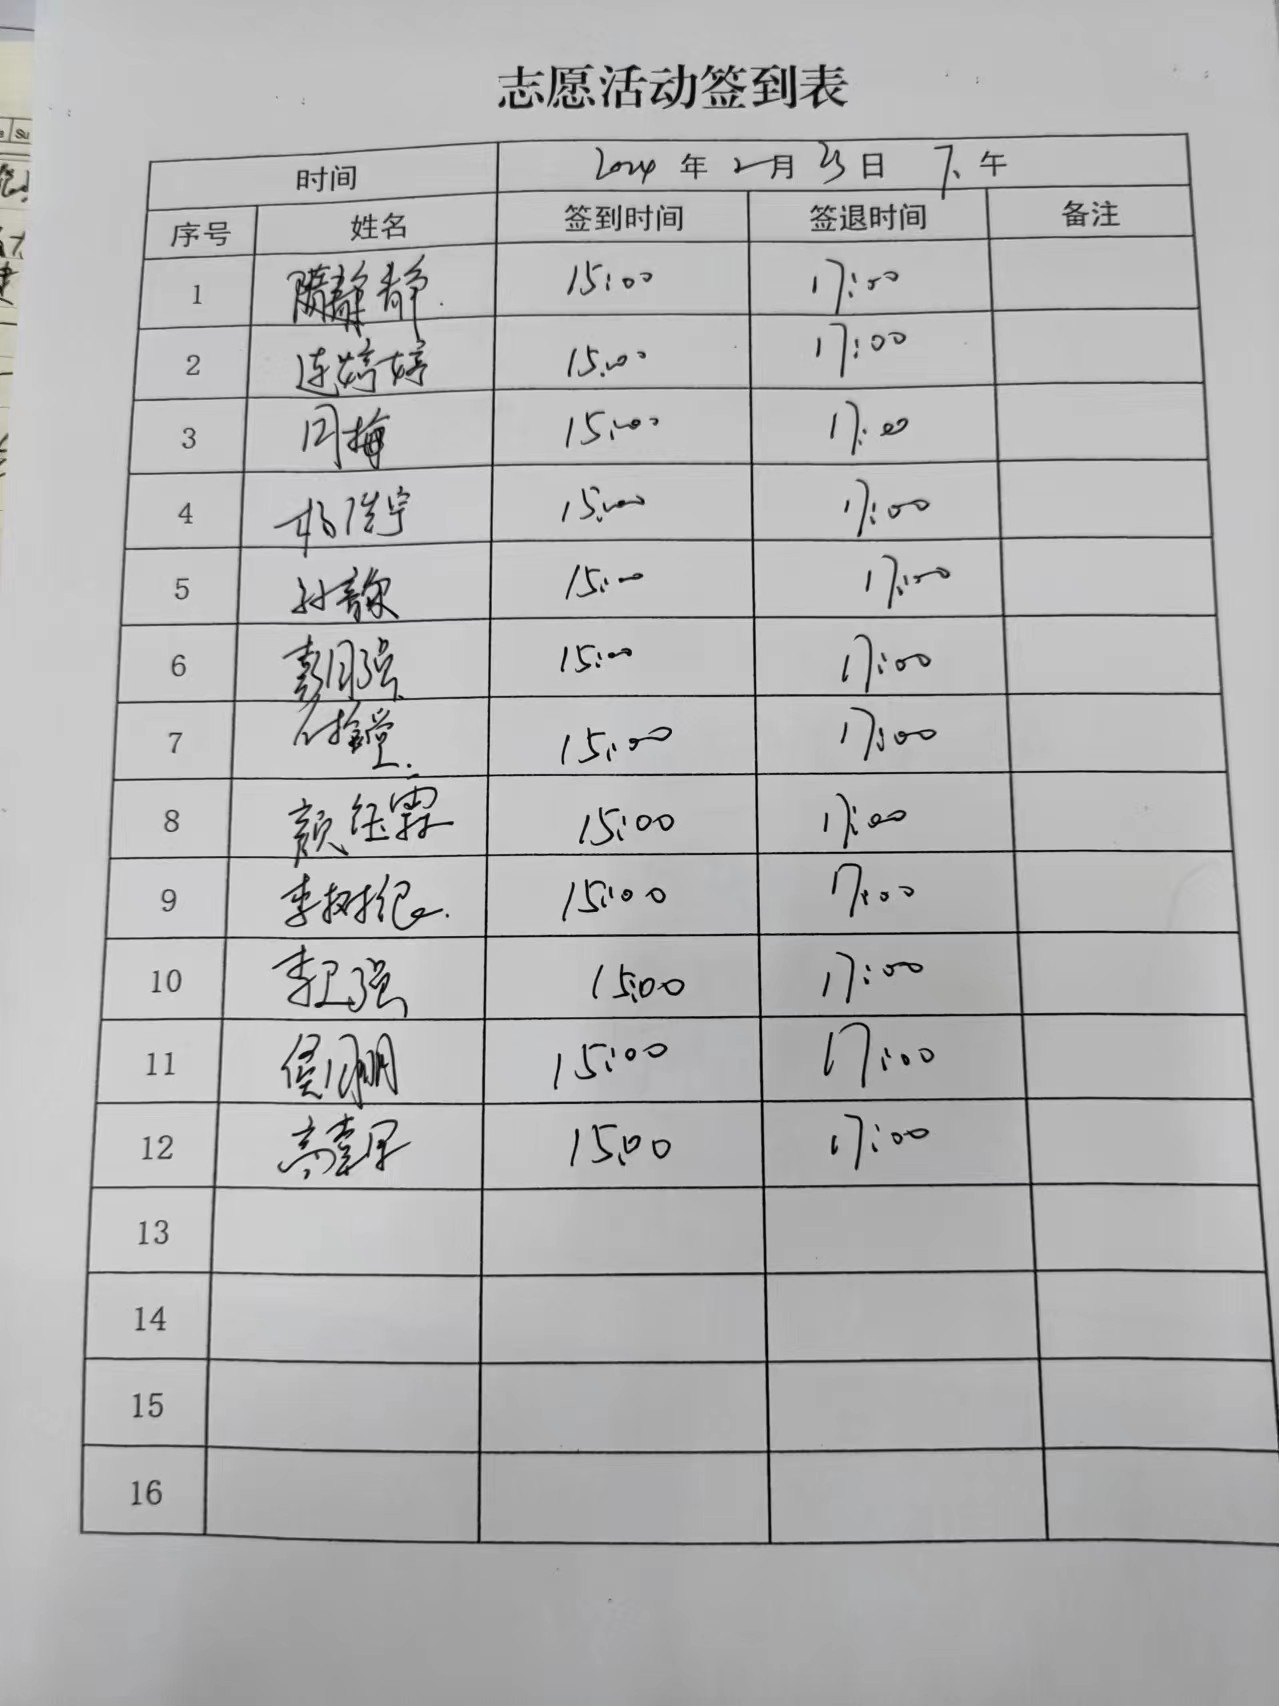 志愿活动签到表
时间 2024 年 2 月 23 日 下午
序号 姓名 签到时间 签退时间 备注
1 隋静静 15:00 17:00
2 连婷婷 15:00 17:00
3 闫梅 15:00 17:00
4 杨浩宇 15:00 17:00
5 孙 15:00 17:00
6 彭月强 15:00 17:00
7 15:00 17:00
8 颜钰霖 15:00 17:00
9 李树银 15:00 17:00
10 李卫强 15:00 17:00
11 侯月明 15:00 17:00
12 高 15:00 17:00
13
14
15
16
Su